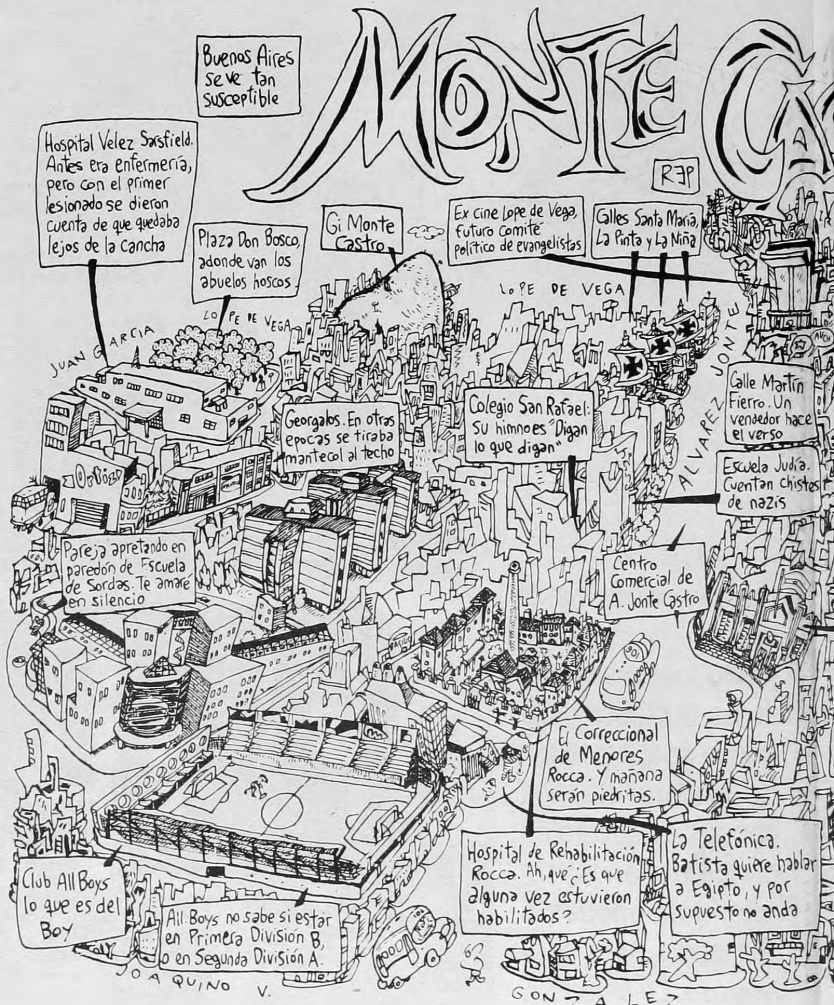 Buenos Aires
se ve tan
susceptible
MONTE CA
REP
Hospital Velez Sarsfield.
Antes era enfermería,
pero con el primer
lesionado se dieron
cuenta de que quedaba
lejos de la cancha
Plaza Don Bosco,
adonde van los
abuelos hoscos
Gi Monte
Castro
Ex cine Lope de Vega,
futuro comité
político de evangelistas
Calles Santa María,
La Pinta y La Niña
LOPE DE VEGA
LOPE DE VEGA
JUAN GARCIA
ALVAREZ JONTE
Georgalos. En otras
epocas se tiraba
mantecol al techo
Colegio San Rafael:
su himno es "Digan
lo que digan"
Calle Martín
Fierro. Un
vendedor hace
el verso
Escuela Judía.
Cuentan chistes
de nazis
Pareja apretando en
paredón de Escuela
de Sordas. Te amaré
en silencio
Centro
Comercial de
A. Jonte Castro
El Correccional
de Menores
Rocca. Y mañana
serán piedritas.
Hospital de Rehabilitación
Rocca. Ah, qué ¿Es que
alguna vez estuvieron
habilitados?
La Telefónica.
Batista quiere hablar
a Egipto, y por
supuesto no anda
Club All Boys
lo que es del
Boy
All Boys no sabe si estar
en Primera División B,
o en Segunda División A.
JOAQUINO V.
GONZALEZ